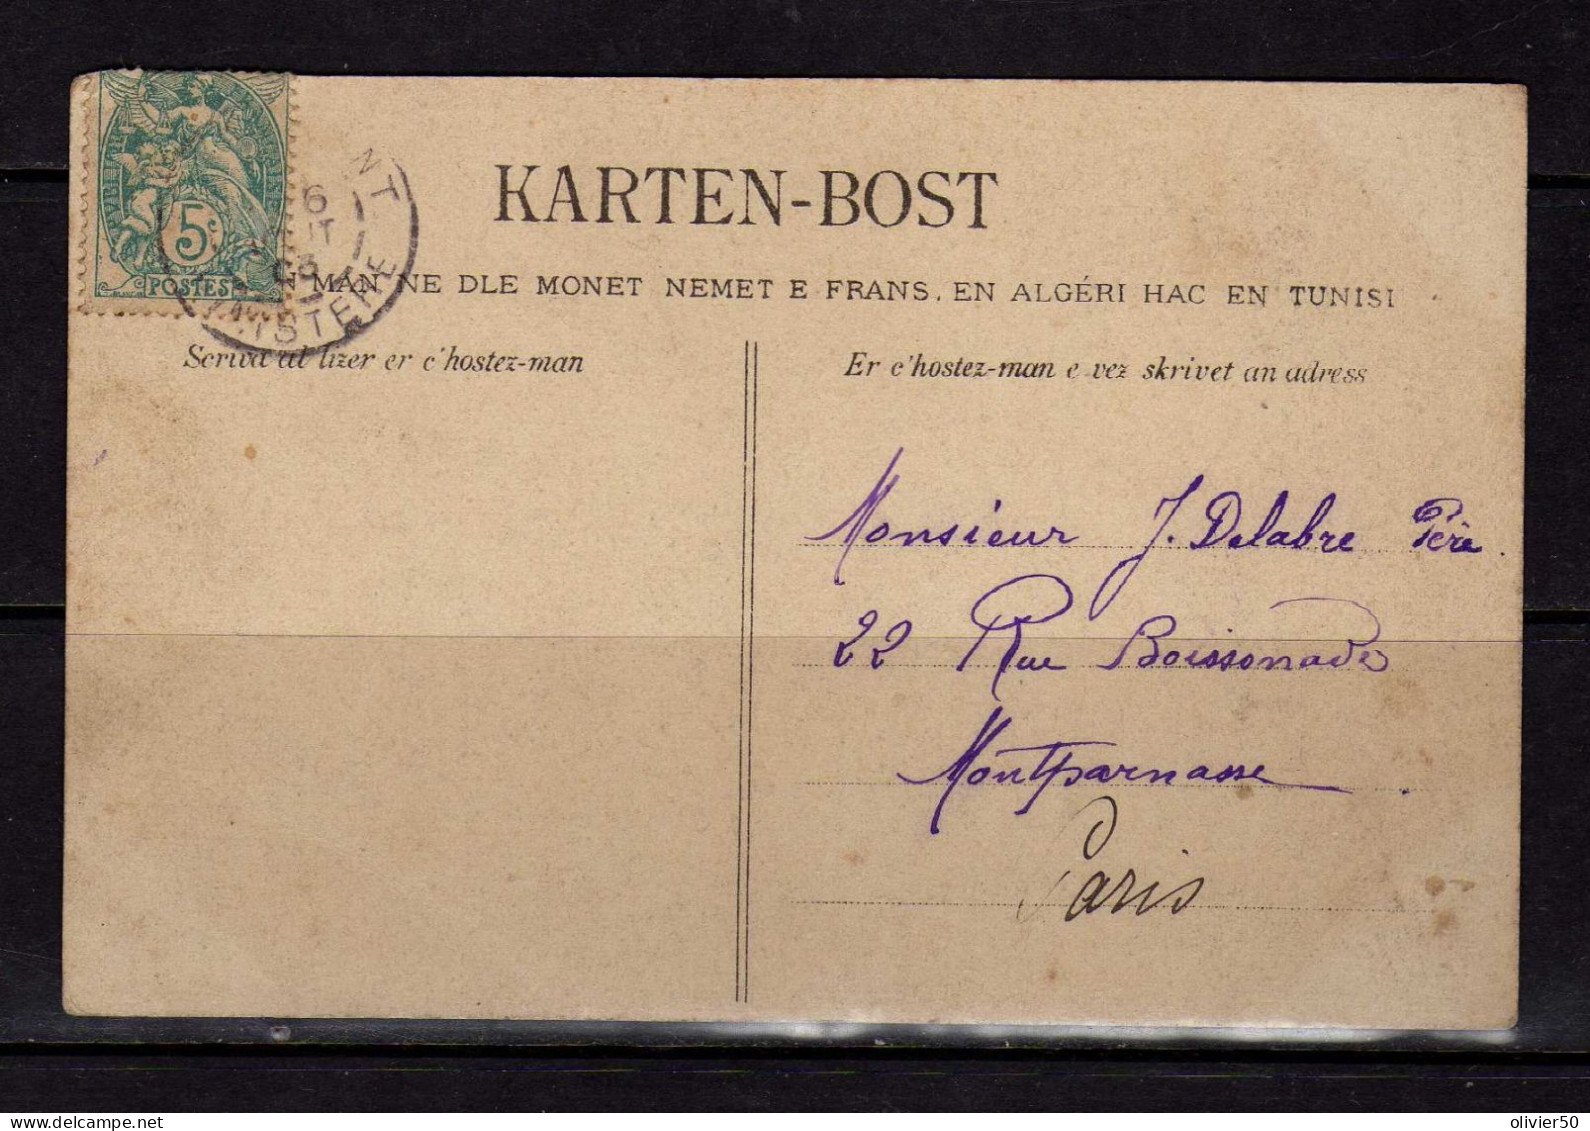 5c
POSTES
NT
6
FINISTERE
KARTEN-BOST
MAN NE DLE MONET NEMET E FRANS, EN ALGÉRI HAC EN TUNISI
Scriva al lizer er c'hostez-man
Er c'hostez-man e vez skrivet an adress
Monsieur J. Delabre Père
22 Rue Boissonade
Montparnasse
Paris
olivier50